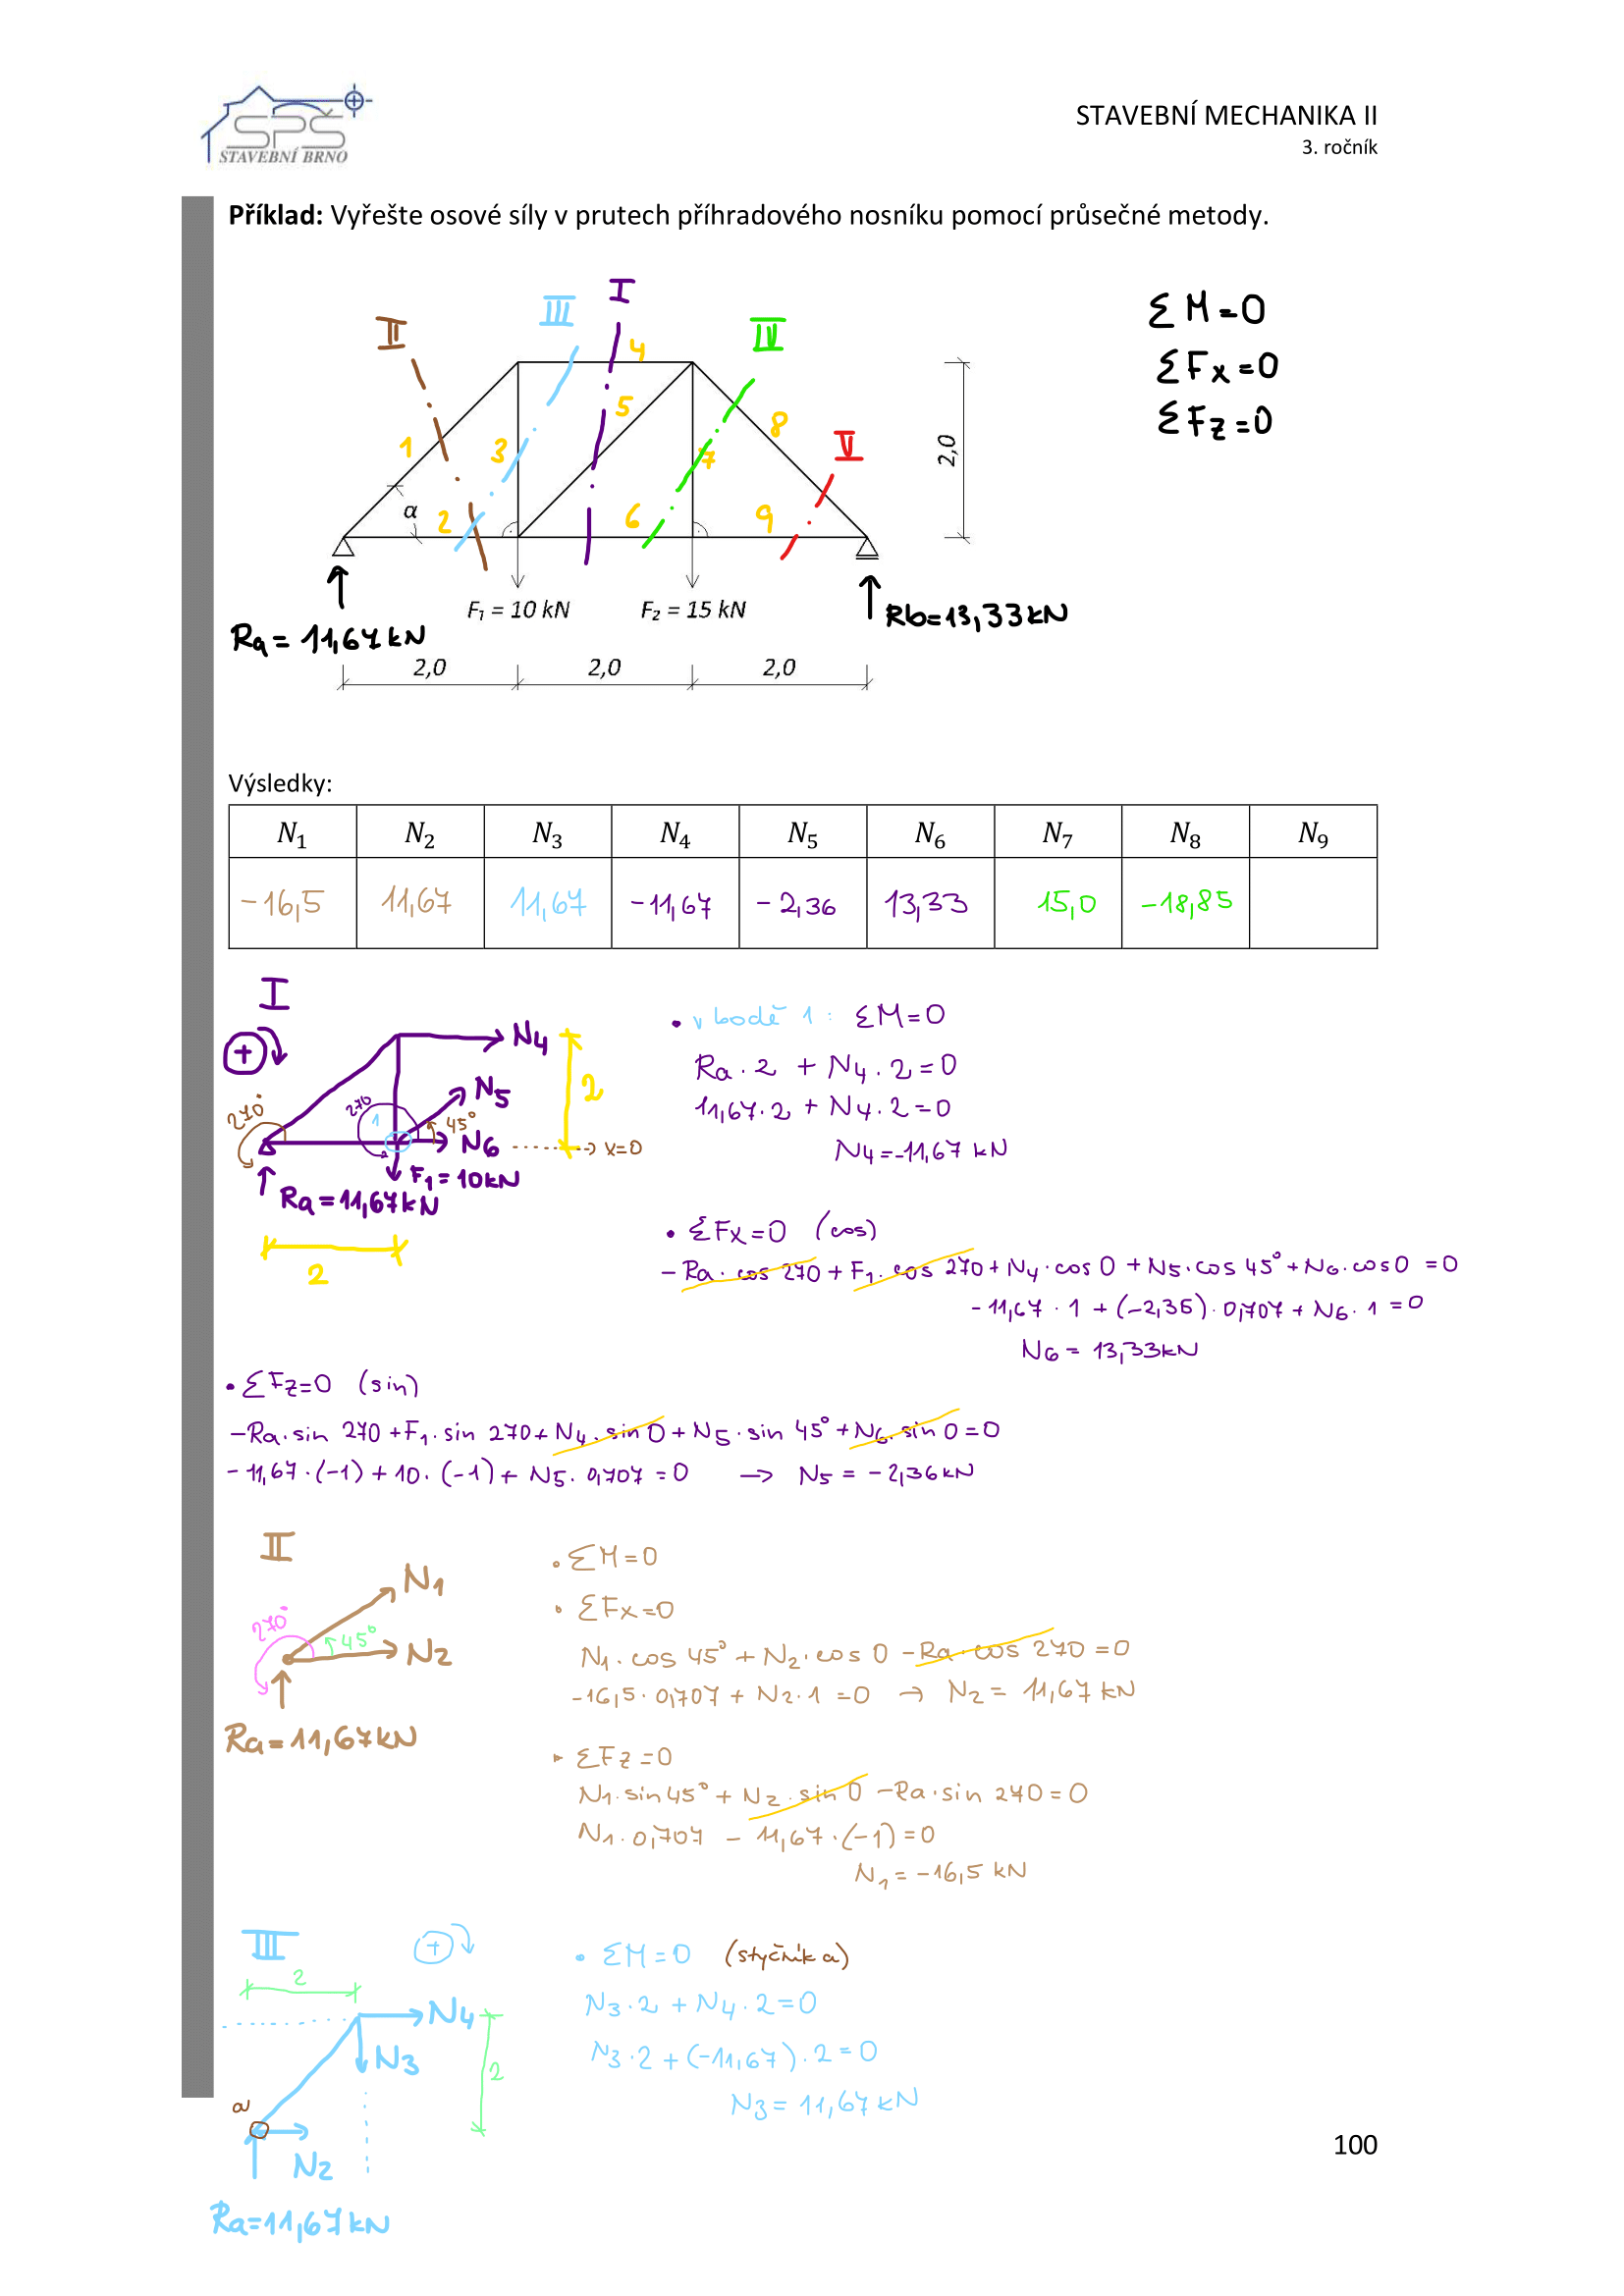 SPS
STAVEBNÍ BRNO
STAVEBNÍ MECHANIKA II
3. ročník
Příklad: Vyřešte osové síly v prutech příhradového nosníku pomocí průsečné metody.
II
III
I
IV
V
1
2
3
4
5
6
7
8
9
α
2,0
ΣM=0
ΣFx=0
ΣFz=0
F₁ = 10 kN
F₂ = 15 kN
Ra = 11,67 kN
Rb=13,33 kN
2,0 2,0 2,0
Výsledky:
N₁ N₂ N₃ N₄ N₅ N₆ N₇ N₈ N₉
-16,5 11,67 11,67 -11,67 -2,36 13,33 15,0 -18,85
I
+
N4
N5
N6
270°
270
1
45°
2
x=0
F₁=10kN
Ra=11,67kN
2
• v bodě 1: ΣM=0
Ra·2 + N4·2=0
11,67·2 + N4·2=0
N4=-11,67 kN
• ΣFx=0 (cos)
-Ra·cos 270 + F₁·cos 270 + N4·cos 0 + N5·cos 45° + N6·cos 0 = 0
-11,67·1 + (-2,36)·0,707 + N6·1 = 0
N6 = 13,33kN
• ΣFz=0 (sin)
-Ra·sin 270 + F₁·sin 270 + N4·sin 0 + N5·sin 45° + N6·sin 0 = 0
-11,67·(-1) + 10·(-1) + N5·0,707 = 0 → N5 = -2,36 kN
II
N1
270°
45°
N2
Ra=11,67kN
• ΣM=0
• ΣFx=0
N1·cos 45° + N2·cos 0 - Ra·cos 270 = 0
-16,5·0,707 + N2·1 = 0 → N2 = 11,67 kN
• ΣFz=0
N1·sin 45° + N2·sin 0 - Ra·sin 270 = 0
N1·0,707 - 11,67·(-1) = 0
N1 = -16,5 kN
III
+
2
N4
N3
2
a
N2
Ra=11,67kN
• ΣM=0 (styčník a)
N3·2 + N4·2=0
N3·2 + (-11,67)·2=0
N3 = 11,67 kN
100